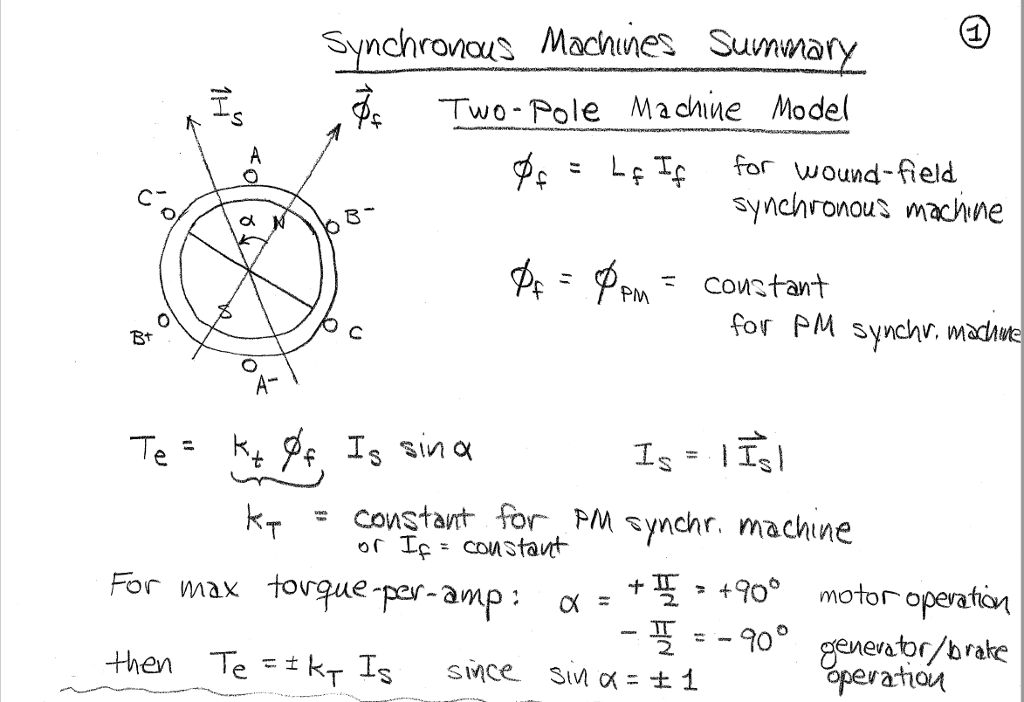 Synchronous Machines Summary
1
Two-Pole Machine Model
I⃗s
ϕ⃗f
A
C⁻
B⁻
α
N
S
B+
C
A⁻
ϕf = Lf If for wound-field
synchronous machine
ϕf = ϕPM = constant
for PM synchr. machine
Te = kt ϕf Is sin α
Is = |I⃗s|
kT = constant for PM synchr. machine
or If = constant
For max torque-per-amp: α = +π/2 = +90° motor operation
-π/2 = -90° generator/brake
operation
then Te = ± kT Is since sin α = ± 1